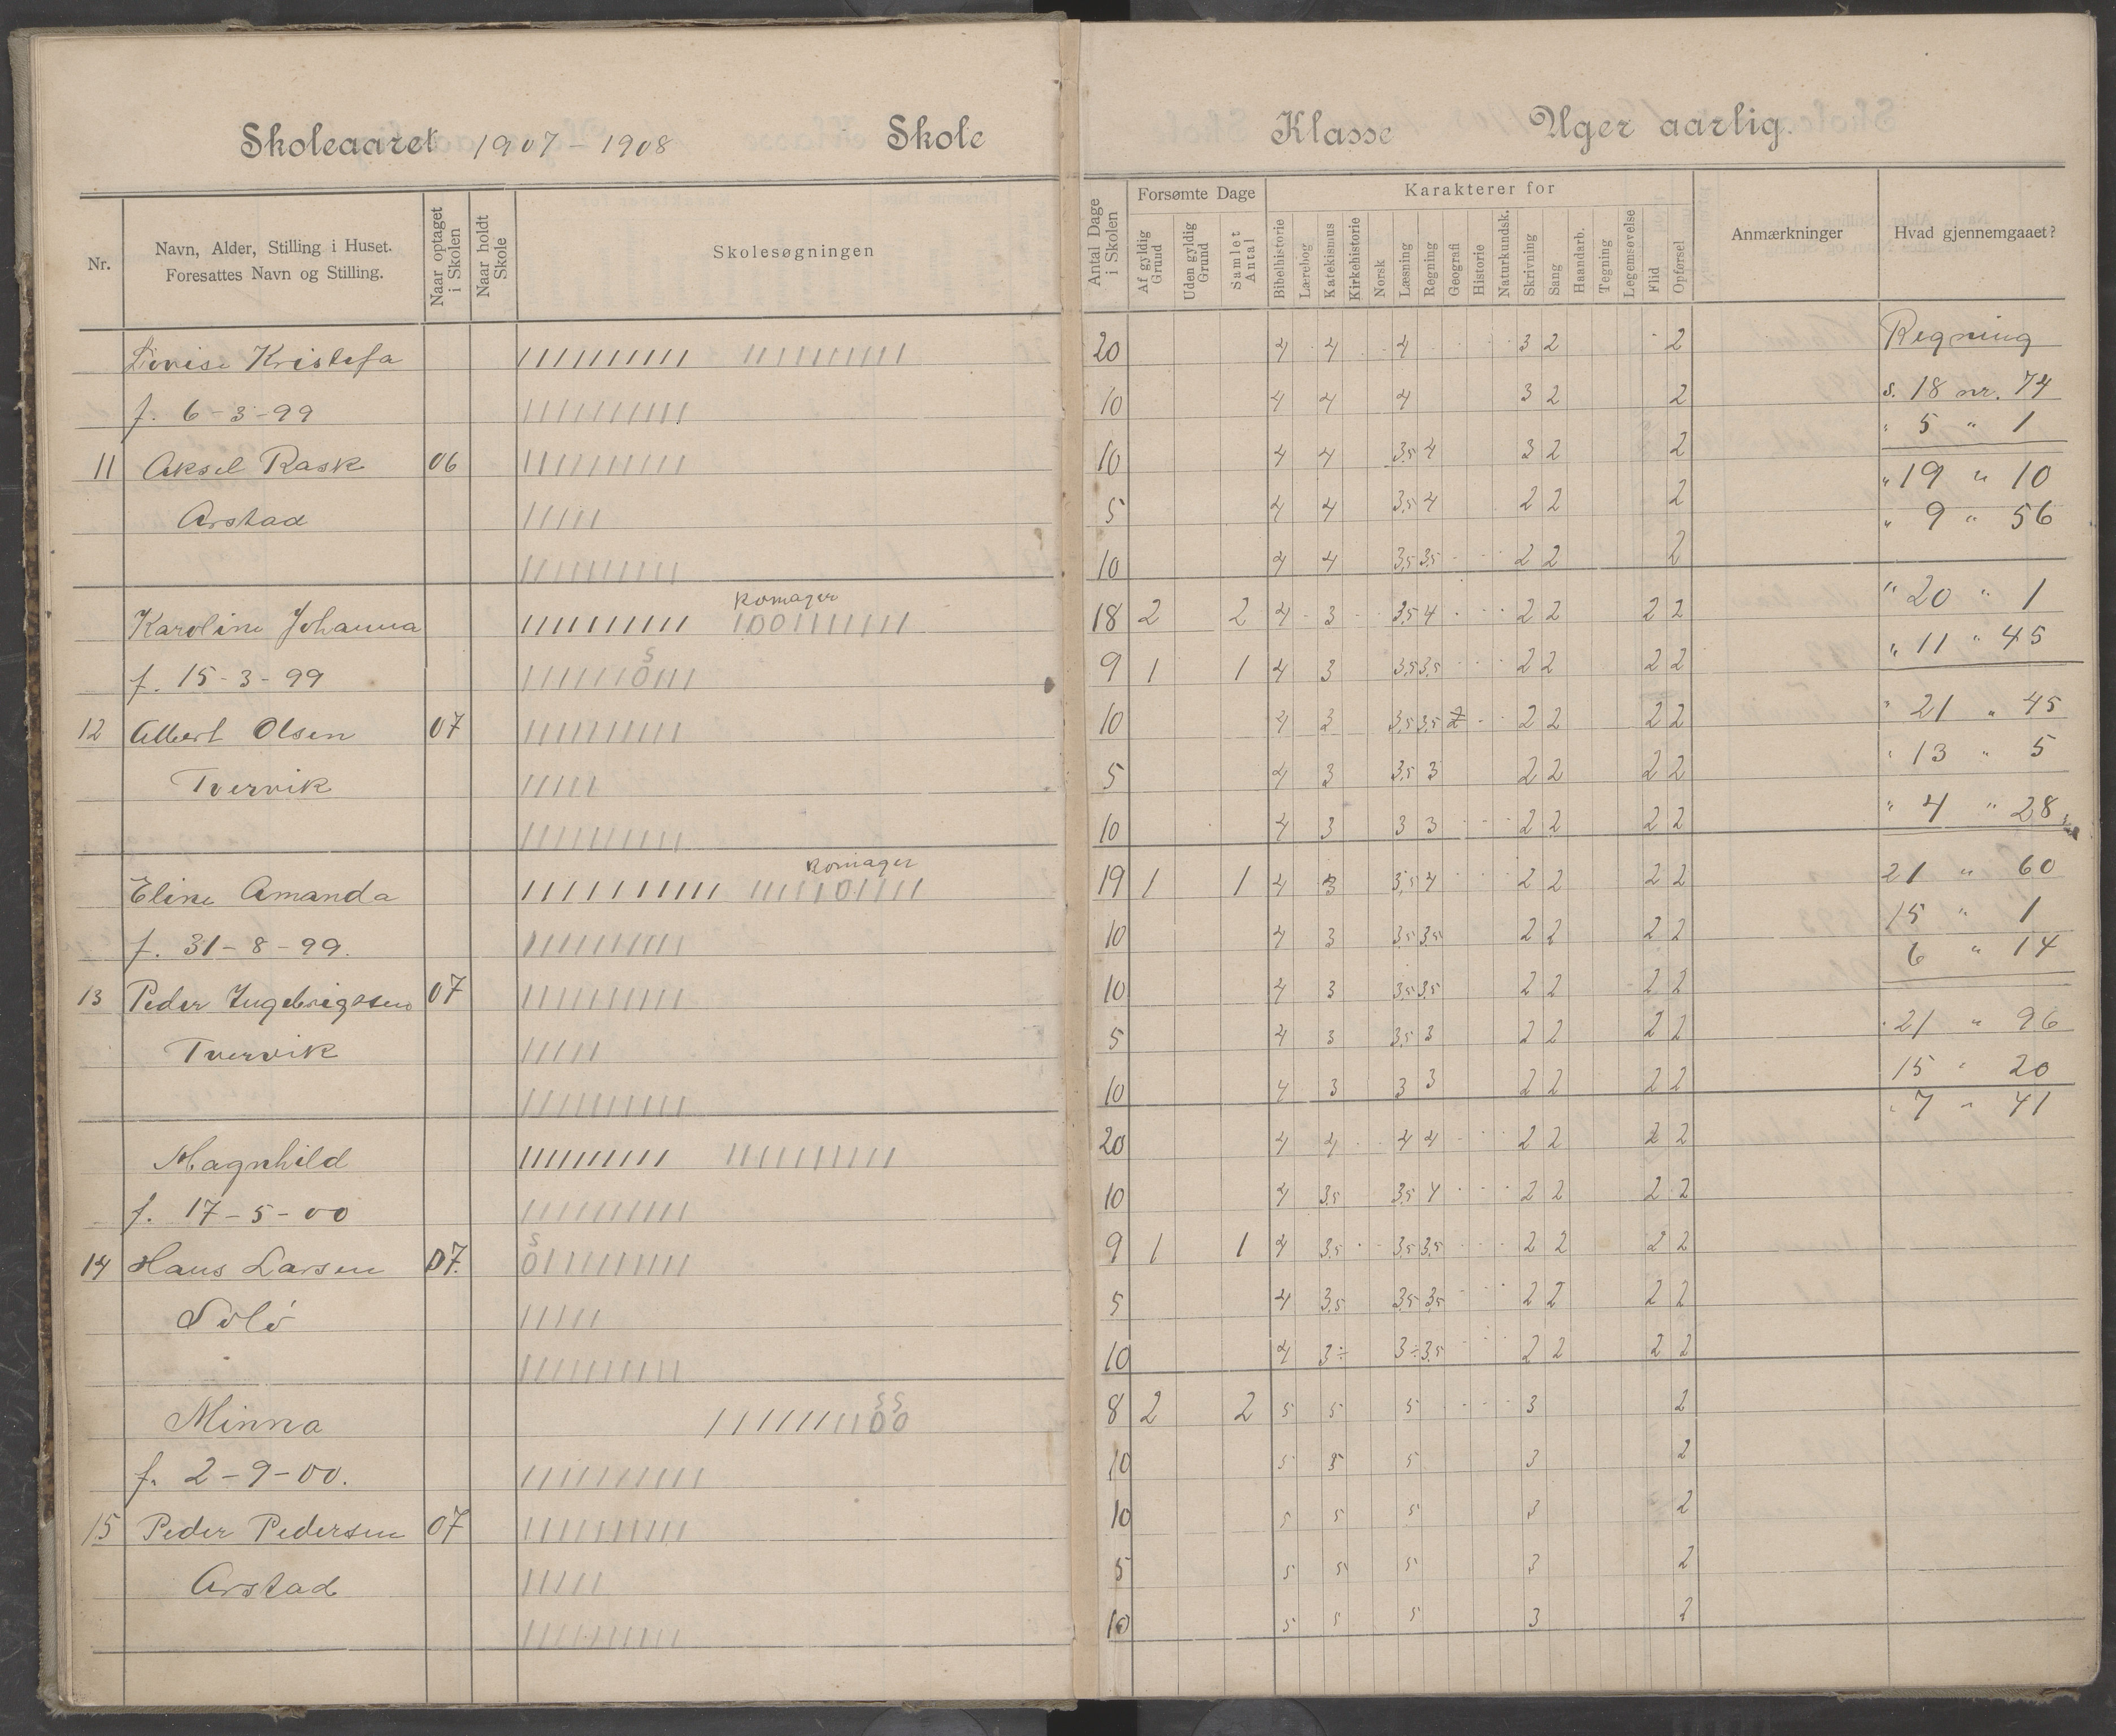 Skoleaaret 1907 - 1908 Skole Klasse Uger aarlig.
Nr. Navn, Alder, Stilling i Huset. Foresattes Navn og Stilling. Naar optaget i Skolen Naar holdt Skole Skolesøgningen Antal Dage i Skolen Forsømte Dage Af gyldig Grund Uden gyldig Grund Samlet Antal Karakterer for Bibelhistorie Lærebog Katekismus Kirkehistorie Norsk Læsning Regning Geografi Historie Naturkundsk. Skrivning Sang Haandarb. Tegning Legemsøvelse Flid Opførsel Anmærkninger Hvad gjennemgaaet?
Lovise Kristefa 1111111111 1111111111 20 4 4 4 3 2 2 Regning
f. 6-3-99 1111111111 10 4 4 4 3 2 2 s. 18 nr. 74
" 5 " 1
11 Aksel Rask 06 1111111111 10 4 4 3,5 4 3 2 2 " 19 " 10
Arstad 11111 5 4 4 3,5 4 2 2 2 " 9 " 56
1111111111 10 4 4 3,5 3,5 2 2 2
Komager
Karoline Johanna 1111111111 1001111111 18 2 2 4 3 3,5 4 2 2 2 2 " 20 " 1
s
f. 15-3-99 1111110111 9 1 1 4 3 3,5 3,5 2 2 2 2 " 11 " 45
12 Albert Olsen 07 1111111111 10 4 3 3,5 3,5 2 2 2 2 " 21 " 45
Tvervik 11111 5 4 3 3,5 3 2 2 2 2 " 13 " 5
1111111111 10 4 3 3 3 2 2 2 2 " 4 " 28
Komager
Eline Amanda 1111111111 1111101111 19 1 1 4 3 3,5 4 2 2 2 2 21 " 60
f. 31-8-99. 1111111111 10 4 3 3,5 3,5 2 2 2 2 15 " 1
6 " 14
13 Peder Ingebrigtsen 07 1111111111 10 4 3 3,5 3,5 2 2 2 2
Tvervik 11111 5 4 3 3,5 3 2 2 2 2 " 21 " 96
1111111111 10 4 3 3 3 2 2 2 2 15 " 20
" 7 " 41
Magnhild 1111111111 1111111111 20 4 4 4 4 2 2 2 2
f. 17-5-00 1111111111 10 4 3,5 3,5 4 2 2 2 2
s
14 Hans Larsen 07. 0111111111 9 1 1 4 3,5 3,5 3,5 2 2 2 2
Solö 11111 5 4 3,5 3,5 3,5 2 2 2 2
1111111111 10 4 3÷ 3÷ 3,5 2 2 2 2
s s
Minna 1111111100 8 2 2 5 5 5 3 2
f. 2-9-00. 1111111111 10 5 5 5 3 2
15 Peder Pedersen 07 1111111111 10 5 5 5 3 2
Arstad 11111 5 5 5 5 3 2
1111111111 10 5 5 5 3 2